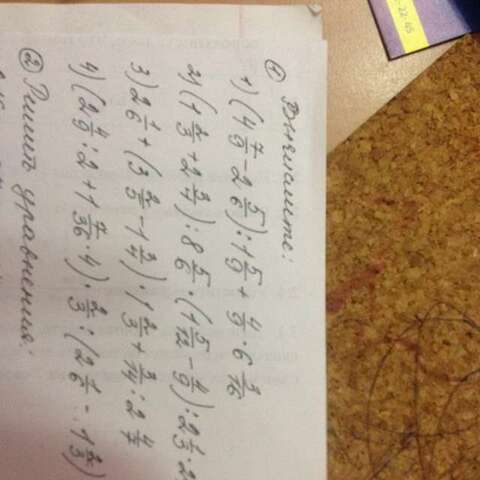 ① Вычислите:
1) (4 7/9 - 2 5/6) : 1 5/9 + 4/9 · 6 3/16
2) (1 2/3 + 2 3/4) : 8 5/6 · (1 5/12 - 4/9) : 2 1/3 · 2
3) 2 1/6 + (3 2/5 - 1 3/4) · 1 2/3 + 3/14 : 2 4/7
4) (2 4/9 : 2 + 1 7/36 · 4) · 2/3 : (2 1/6 - 1 2/3)
② Решить уравнения:
22-45